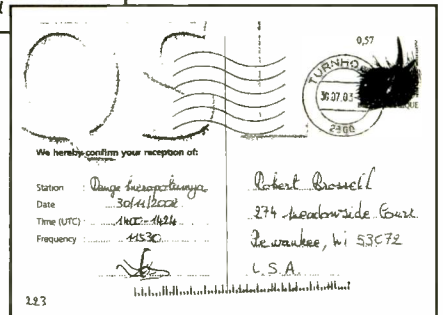 0,57
TURNHO
2300
We hereby confirm your reception of:
Station :
Date 30/11/2002
Time (UTC) : 1400-1424
Frequency : 11530
Robert
274 Meadowside Court
Pewaukee, Wi 53072
U.S.A.
223